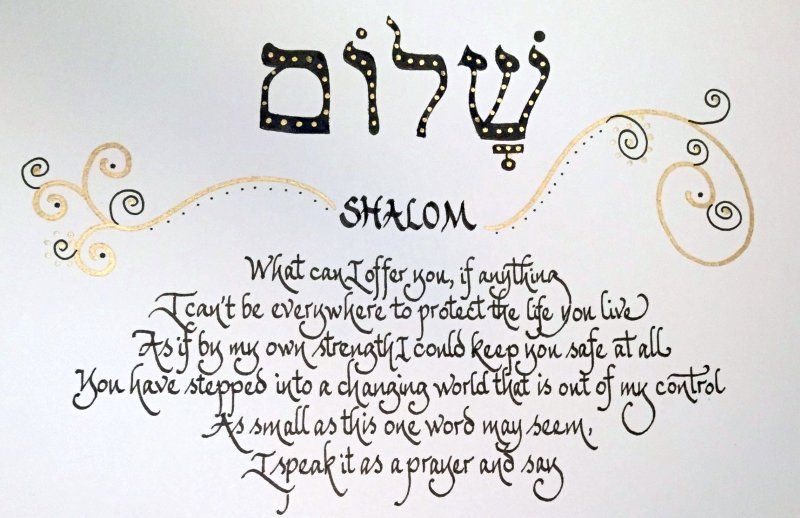 שָׁלוֹם
SHALOM
What can I offer you, if anything
I can't be everywhere to protect the life you live
As if by my own strength I could keep you safe at all
You have stepped into a changing world that is out of my control
As small as this one word may seem,
I speak it as a prayer and say